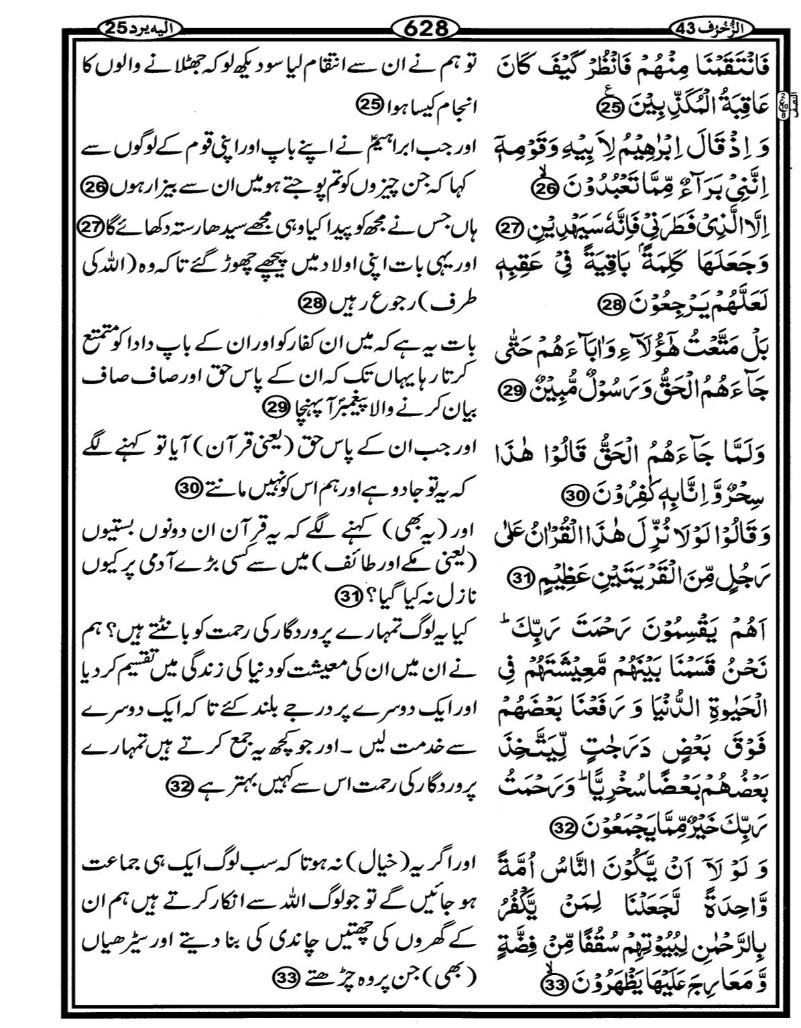 الزُّخْرُف 43
628
اليه يرد 25
فَانْتَقَمْنَا مِنْهُمْ فَانْظُرْ كَيْفَ كَانَ
عَاقِبَةُ الْمُكَذِّبِيْنَ ﴿25﴾
وَ اِذْ قَالَ اِبْرٰهِيْمُ لِاَبِيْهِ وَ قَوْمِهٖٓ
اِنَّنِيْ بَرَآءٌ مِّمَّا تَعْبُدُوْنَ ﴿26﴾
اِلَّا الَّذِيْ فَطَرَنِيْ فَاِنَّهٗ سَيَهْدِيْنِ ﴿27﴾
وَ جَعَلَهَا كَلِمَةًۢ بَاقِيَةً فِيْ عَقِبِهٖ
لَعَلَّهُمْ يَرْجِعُوْنَ ﴿28﴾
بَلْ مَتَّعْتُ هٰٓؤُلَآءِ وَ اٰبَآءَهُمْ حَتّٰى
جَآءَهُمُ الْحَقُّ وَ رَسُوْلٌ مُّبِيْنٌ ﴿29﴾
وَ لَمَّا جَآءَهُمُ الْحَقُّ قَالُوْا هٰذَا
سِحْرٌ وَّ اِنَّا بِهٖ كٰفِرُوْنَ ﴿30﴾
وَ قَالُوْا لَوْ لَا نُزِّلَ هٰذَا الْقُرْاٰنُ عَلٰى
رَجُلٍ مِّنَ الْقَرْيَتَيْنِ عَظِيْمٍ ﴿31﴾
اَهُمْ يَقْسِمُوْنَ رَحْمَتَ رَبِّكَ ؕ
نَحْنُ قَسَمْنَا بَيْنَهُمْ مَّعِيْشَتَهُمْ فِي
الْحَيٰوةِ الدُّنْيَا وَ رَفَعْنَا بَعْضَهُمْ
فَوْقَ بَعْضٍ دَرَجٰتٍ لِّيَتَّخِذَ
بَعْضُهُمْ بَعْضًا سُخْرِيًّا ؕ وَ رَحْمَتُ
رَبِّكَ خَيْرٌ مِّمَّا يَجْمَعُوْنَ ﴿32﴾
وَ لَوْ لَاۤ اَنْ يَّكُوْنَ النَّاسُ اُمَّةً
وَّاحِدَةً لَّجَعَلْنَا لِمَنْ يَّكْفُرُ
بِالرَّحْمٰنِ لِبُيُوْتِهِمْ سُقُفًا مِّنْ فِضَّةٍ
وَّ مَعَارِجَ عَلَيْهَا يَظْهَرُوْنَ ﴿33﴾
تو ہم نے ان سے انتقام لیا سو دیکھ لو کہ جھٹلانے والوں کا
انجام کیسا ہوا ﴿25﴾
اور جب ابراہیمؑ نے اپنے باپ اور اپنی قوم کے لوگوں سے
کہا کہ جن چیزوں کو تم پوجتے ہو میں ان سے بیزار ہوں ﴿26﴾
ہاں جس نے مجھ کو پیدا کیا وہی مجھے سیدھا رستہ دکھائے گا ﴿27﴾
اور یہی بات اپنی اولاد میں پیچھے چھوڑ گئے تاکہ وہ (اللہ کی
طرف) رجوع رہیں ﴿28﴾
بات یہ ہے کہ میں ان کفار کو اور ان کے باپ دادا کو متمتع
کرتا رہا یہاں تک کہ ان کے پاس حق اور صاف صاف
بیان کرنے والا پیغمبرؐ آ پہنچا ﴿29﴾
اور جب ان کے پاس حق (یعنی قرآن) آیا تو کہنے لگے
کہ یہ تو جادو ہے اور ہم اس کو نہیں مانتے ﴿30﴾
اور (یہ بھی) کہنے لگے کہ یہ قرآن ان دونوں بستیوں
(یعنی مکے اور طائف) میں سے کسی بڑے آدمی پر کیوں
نازل نہ کیا گیا؟ ﴿31﴾
کیا یہ لوگ تمہارے پروردگار کی رحمت کو بانٹتے ہیں؟ ہم
نے ان میں ان کی معیشت کو دنیا کی زندگی میں تقسیم کر دیا
اور ایک دوسرے پر درجے بلند کئے تاکہ ایک دوسرے
سے خدمت لیں ۔ اور جو کچھ یہ جمع کرتے ہیں تمہارے
پروردگار کی رحمت اس سے کہیں بہتر ہے ﴿32﴾
اور اگر یہ (خیال) نہ ہوتا کہ سب لوگ ایک ہی جماعت
ہو جائیں گے تو جو لوگ اللہ سے انکار کرتے ہیں ہم ان
کے گھروں کی چھتیں چاندی کی بنا دیتے اور سیڑھیاں
(بھی) جن پر وہ چڑھتے ﴿33﴾